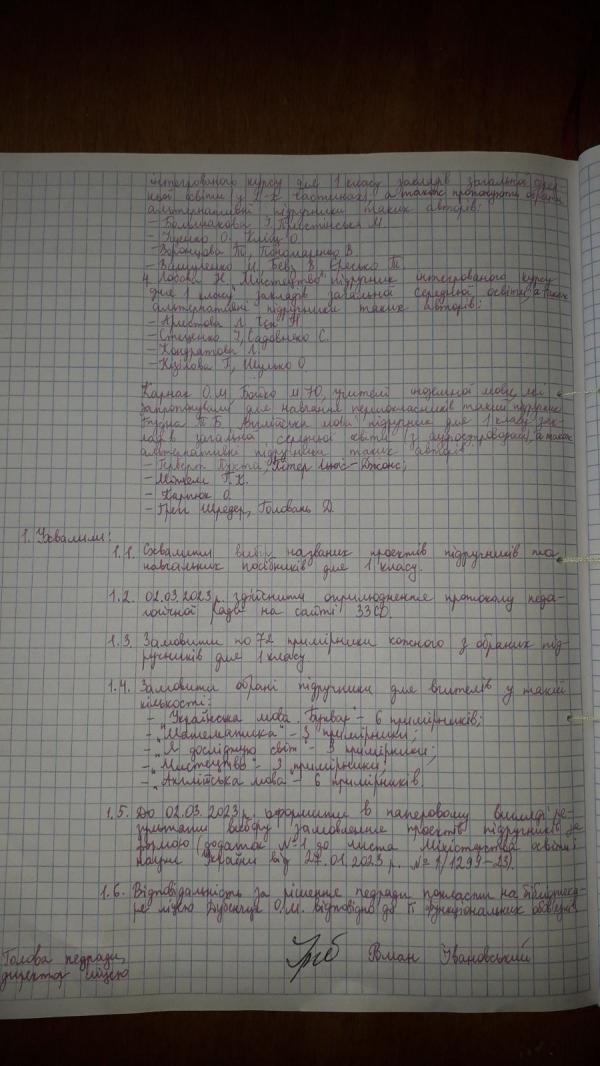 інтегрованого курсу для 1 класу закладів загальної серед-
ньої освіти (у 2-х частинах), а також пропонують обрати
альтернативні підручники таких авторів:
- Большакова І, Пристінська М
- Іщенко О, Кліщ О
- Воронцова Т, Пономаренко В
- Вашуленко О, Бевз В, Єресько Т
4. Лобова Н. "Мистецтво" підручник інтегрованого курсу
для 1 класу закладів загальної середньої освіти, а також
альтернативні підручники таких авторів:
- Аристова Л, Чен Н
- Стеценко І, Садовенко С.
- Кондратова Л.
- Кізілова Г, Шулько О
Карнак О.М, Бойко М.Ю, учителі іноземної мови,
запропонували для навчання першокласників такий підручник
Будна Т.Б. Англійська мова підручник для 1 класу зак-
ладів загальної середньої освіти (з аудіосупроводом), а також
альтернативні підручники таких авторів
- Герберт Пухта, Пітер Льюїс-Джонс;
- Мітчелл Г.К.
- Карпюк О.
- Грег Шредер, Головань Д.
1. Ухвалили:
1.1. Схвалити вибір названих проєктів підручників та
навчальних посібників для 1 класу.
1.2. 02.03.2023 р. здійснити оприлюднення протоколу педа-
гогічної ради на сайті ЗЗСО.
1.3. Замовити по 72 примірники кожного з обраних під-
ручників для 1 класу
1.4. Замовити обрані підручники для вчителів у такій
кількості:
- "Українська мова. Буквар" - 6 примірників;
- "Математика" - 3 примірники;
- "Я досліджую світ" - 3 примірники;
- "Мистецтво" - 3 примірники;
- "Англійська мова" - 6 примірників.
1.5. До 02.03.2023 р. оформити в паперовому вигляді ре-
зультати вибору/замовлення проєктів підручників за
формою (додаток №1 до листа Міністерства освіти і
науки України від 27.01.2023 р. № 1/1297-23).
1.6. Відповідальність за рішення педради покласти на бібліотека-
ря ліцею О.М. відповідно до її функціональних обов'язків
Голова педради,
директор ліцею Роман Івановський